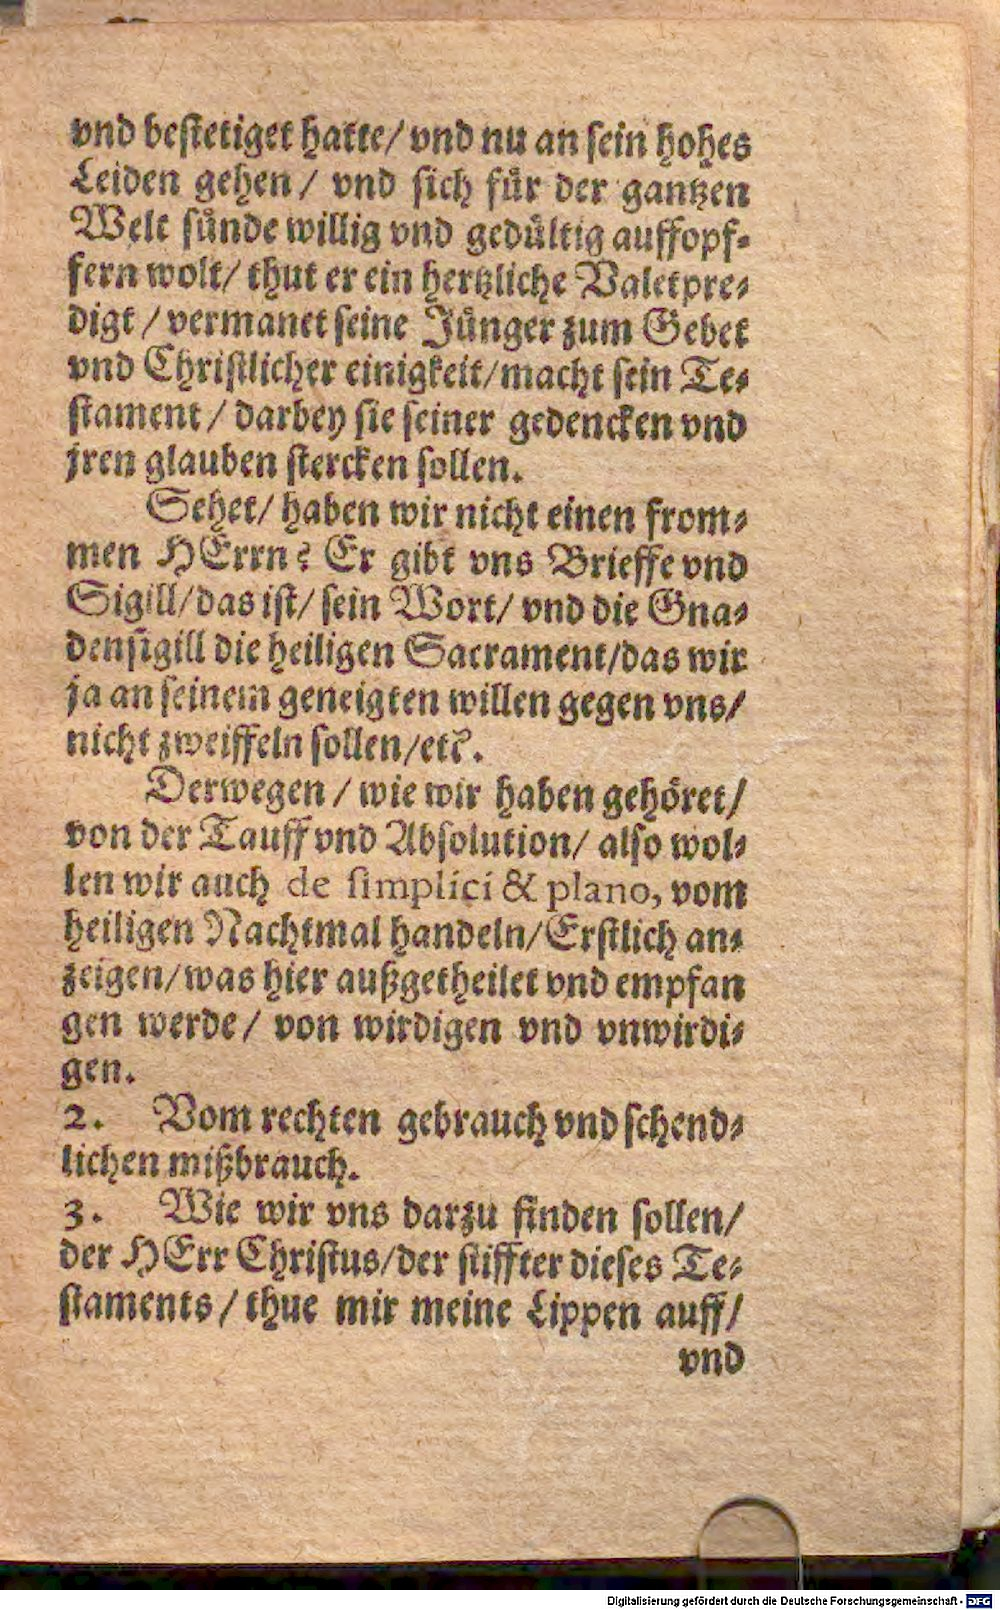 vnd bestetiget hatte/ vnd nu an sein hohes
Leiden gehen/ vnd sich fuͤr der gantzen
Welt suͤnde willig vnd geduͤltig auffopf-
fern wolt/ thut er ein hertzliche Valetpre-
digt/ vermanet seine Juͤnger zum Gebet
vnd Christlicher einigkeit/macht sein Te-
stament/ darbey sie seiner gedencken vnd
jren glauben stercken sollen.
Sehet/ haben wir nicht einen from-
men HErrn? Er gibt vns Brieffe vnd
Sigill/das ist/ sein Wort/ vnd die Gna-
densigill die heiligen Sacrament/das wir
ja an seinem geneigten willen gegen vns/
nicht zweiffeln sollen/etc.
Derwegen/ wie wir haben gehoͤret/
von der Tauff vnd Absolution/ also wol-
len wir auch de simplici & plano, vom
heiligen Nachtmal handeln/Erstlich an-
zeigen/was hier außgetheilet vnd empfan
gen werde/ von wirdigen vnd vnwirdi-
gen.
2. Vom rechten gebrauch vnd schend-
lichen mißbrauch.
3. Wie wir vns darzu finden sollen/
der HErr Christus/der stiffter dieses Te-
staments/ thue mir meine Lippen auff/
vnd
Digitalisierung gefördert durch die Deutsche Forschungsgemeinschaft - DFG